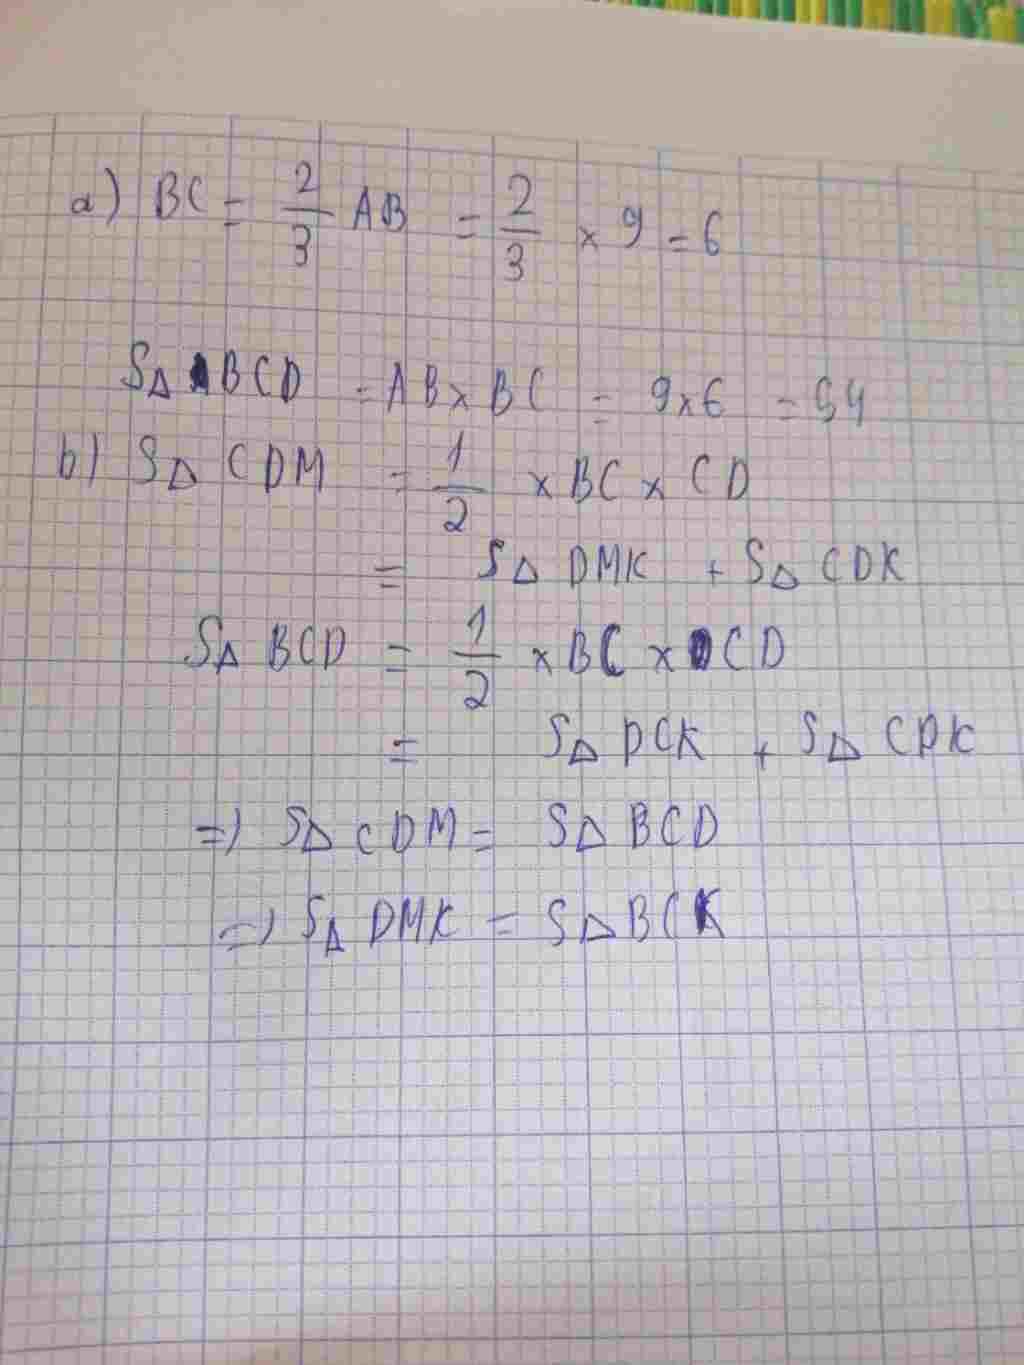 a) BC = 2/3 AB = 2/3 × 9 = 6
SΔ ABCD = AB × BC = 9 × 6 = 54
b) SΔ CDM = 1/2 × BC × CD
= SΔ DMK + SΔ CDK
SΔ BCD = 1/2 × BC × CD
= SΔ DCK + SΔ CDK
=) SΔ CDM = SΔ BCD
=) SΔ DMK = SΔ BCK